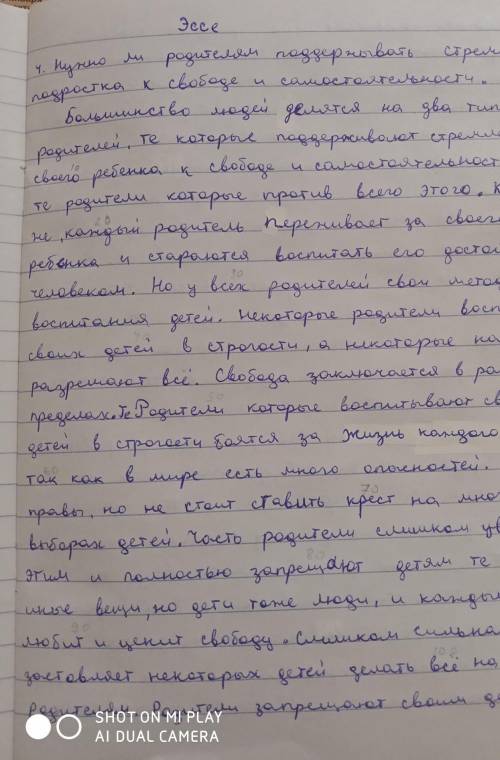 Эссе
4. Нужно ли родителям поддержывать стрем
подростка к свободе и самостоятельности.
Большинство людей делятся на два тип
родителей, те которые поддерживают стремл
своего ребенка к свободе и самостоятельност
те родители которые против всего этого. К
не, каждый родитель переживает за своег
ребенка и стараются воспитать его досто
человеком. Но у всех родителей свои мето
воспитания детей. Некоторые родители восп
своих детей в строгости, а никоторые на
разрешают всё. Свобода заключается в ра
пределах. Те Родители которые воспитывают св
детей в строгости боятся за жизнь каждого
так как в мире есть много опосностей.
правы, но не стоит ставить крест на мно
выборах детей. Часто родители слишком ув
этим и полностью запрещают детям те
иные вещи, но дети тоже люди, и кажды
любит и ценит свободу. Слишком сильна
заставляет некоторых детей делать всё на
родителям. Родители запрещают своим д
SHOT ON MI PLAY
AI DUAL CAMERA